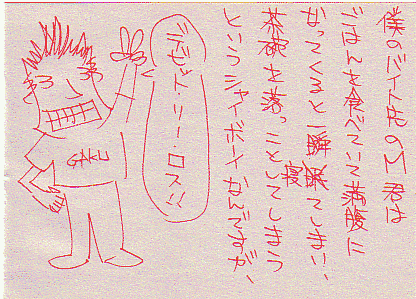 僕のバイト先のM君は
ごはんを食べていて満腹に
なってくると一瞬寝てしまい、
茶碗を落っことしてしまう
というシャイボーイなんですが、
デビッド・リー・ロス!!